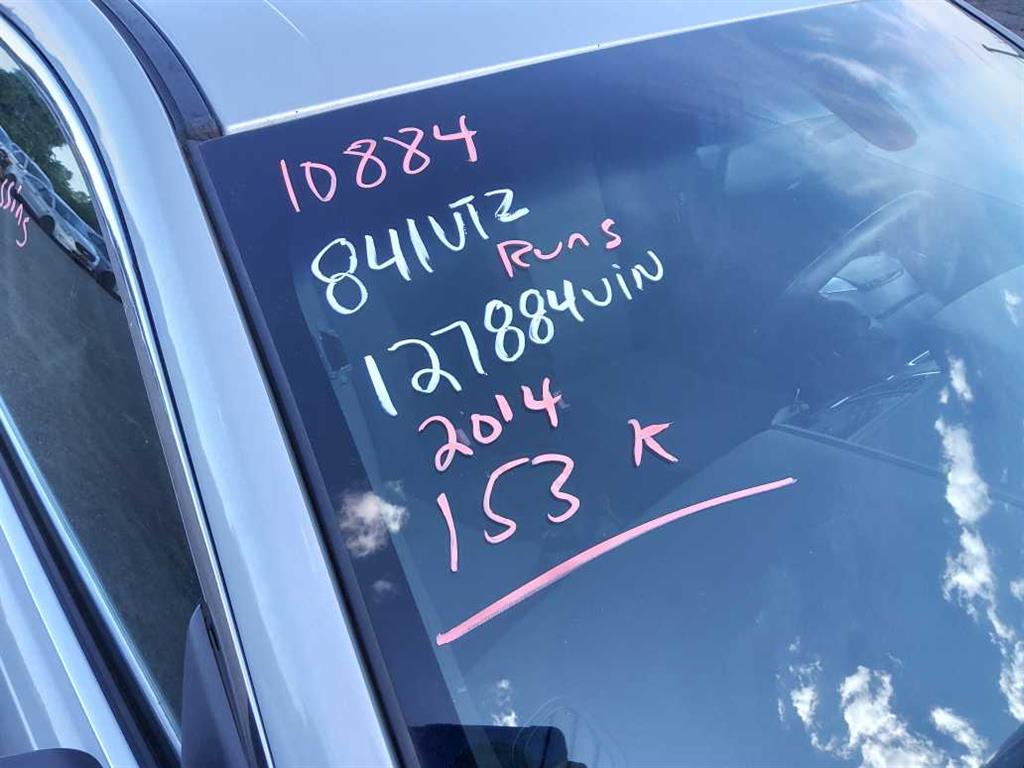 10884
841UTZ
Runs
127884VIN
2014
153 K